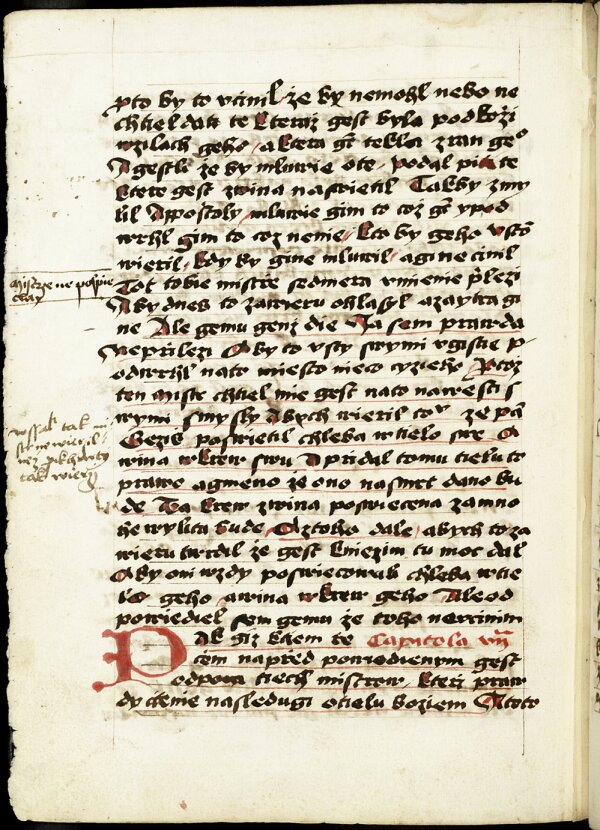 Kto by to vcinil ze by nemohl nebo ne
chtiel dati te kteraz gest byla pod kozi
w zilach geho a ktera gt tekla z ran geo
A gestli ze by mluwie ote podal piti te
ktere gest z wina naswietil Takby zmy
lil Appostoly mluwie gim to coz gt ypod
wrhl gim to coz nenie kto by geho v sto
wieril kdy by gine mluwil a gine cinil
Tot tobie mistre sedmera vmienie przlezi
Aby dnes to zawieru ohlasyl a zaytra gi
ne Ale gemu genz die Ja sem prawda
Neprilezi Aby to vsty swymi vgistie p
odwrhl na to miesto nieco cyzieho Protoz
ten mistr chtiel mie gest na to nawesti s
wymi smysly Abych wieril to ze pan
Gezis poswietil chleba w tielo swe A
wina w krew swu A pridal tomu tielu to
prawe a gmeno ze ono na smrt dano bu
de Ta krew z wina poswiecena za mno
he wylita bude A z toho dale abych to za
wieru twrdil ze gest kniezim tu moc dal
Aby oni wzdy poswiecowali chleba w tie
lo geho a wina w krew geho Ale od
powiediel sem gemu ze toho neucinim
Pak giz k tem te Capitola VIII
cem napred powiedienym gest
odpowa triech mistrow kteri praw
dyciemie nasledugi o tielu boziem A toto
mistrze ne pospie
chay
wssak tak mi
str ne wieril
tak wierzy